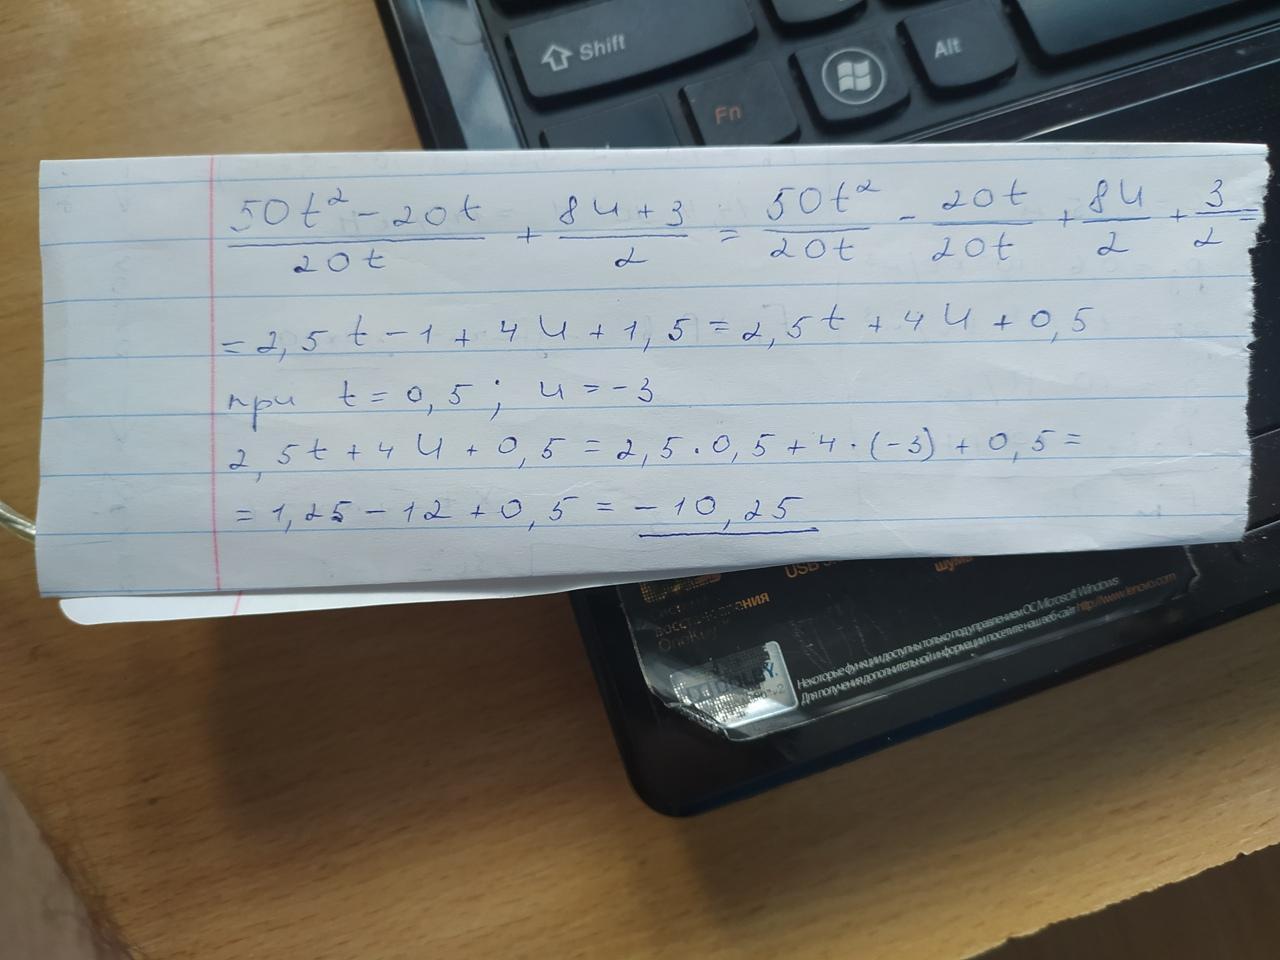 Shift
Alt
Fn
50t² - 20t / 20t + 8u + 3 / 2 = 50t² / 20t - 20t / 20t + 8u / 2 + 3 / 2 =
= 2,5t - 1 + 4u + 1,5 = 2,5t + 4u + 0,5
при t = 0,5; u = -3
2,5t + 4u + 0,5 = 2,5 · 0,5 + 4 · (-3) + 0,5 =
= 1,25 - 12 + 0,5 = -10,25
USB
Некоторые функции доступны только под управлением ОС Microsoft Windows
Для получения дополнительной информации посетите наш веб-сайт http://www.lenovo.com